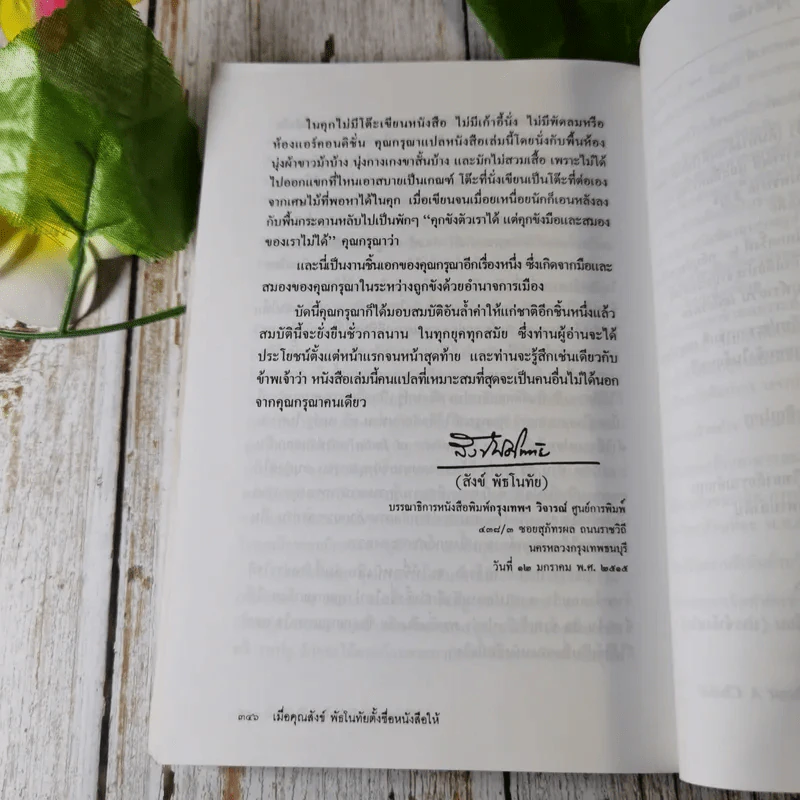 ในคุกไม่มีโต๊ะเขียนหนังสือ ไม่มีเก้าอี้นั่ง ไม่มีพัดลมหรือ
ห้องแอร์คอนดิชั่น คุณกรุณาแปลหนังสือเล่มนี้โดยนั่งกับพื้นห้อง
นุ่งผ้าขาวม้าบ้าง นุ่งกางเกงขาสั้นบ้าง และมักไม่สวมเสื้อ เพราะไม่ได้
ไปออกแขกที่ไหนเอาสบายเป็นเกณฑ์ โต๊ะที่นั่งเขียนเป็นโต๊ะที่ต่อเอง
จากเศษไม้ที่พอหาได้ในคุก เมื่อเขียนจนเมื่อยเหนื่อยนักก็เอนหลังลง
กับพื้นกระดานหลับไปเป็นพักๆ “คุกขังตัวเราได้ แต่คุกขังมือและสมอง
ของเราไม่ได้” คุณกรุณาว่า
และนี่เป็นงานชิ้นเอกของคุณกรุณาอีกเรื่องหนึ่ง ซึ่งเกิดจากมือและ
สมองของคุณกรุณาในระหว่างถูกขังด้วยอำนาจการเมือง
บัดนี้คุณกรุณาก็ได้มอบสมบัติอันล้ำค่าให้แก่ชาติอีกชิ้นหนึ่งแล้ว
สมบัตินี้จะยั่งยืนชั่วกาลนาน ในทุกยุคทุกสมัย ซึ่งท่านผู้อ่านจะได้
ประโยชน์ตั้งแต่หน้าแรกจนหน้าสุดท้าย และท่านจะรู้สึกเช่นเดียวกับ
ข้าพเจ้าว่า หนังสือเล่มนี้คนแปลที่เหมาะสมที่สุดจะเป็นคนอื่นไม่ได้นอก
จากคุณกรุณาคนเดียว
(สังข์ พัธโนทัย)
บรรณาธิการหนังสือพิมพ์กรุงเทพฯ วิจารณ์ ศูนย์การพิมพ์
๔๓๘/๓ ซอยสุภัทรผล ถนนราชวิถี
นครหลวงกรุงเทพธนบุรี
วันที่ ๑๒ มกราคม พ.ศ. ๒๕๑๕
๓๔๖ เมื่อคุณสังข์ พัธโนทัยตั้งชื่อหนังสือให้